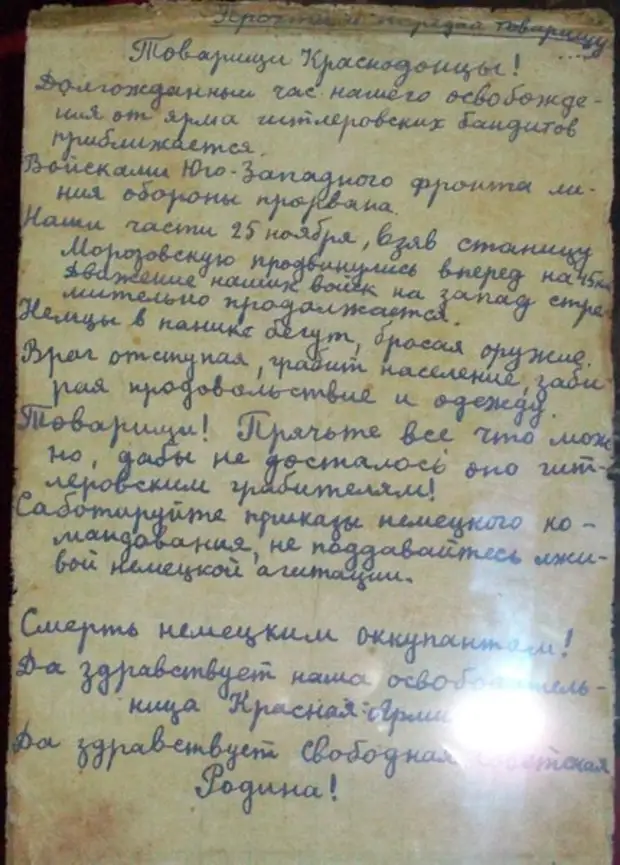 Прочти и передай товарищу
....
Товарищи Краснодонцы!
Долгожданный час нашего освобожде-
ния от ярма гитлеровских бандитов
приближается.
Войсками Юго-Западного фронта ли-
ния обороны прорвана.
Наши части 25 ноября, взяв станицу
Морозовскую продвинулись вперед на 45 км
Движение наших войск на запад стре-
мительно продолжается.
Немцы в панике бегут, бросая оружие.
Враг отступая, грабит население, заби-
рая продовольствие и одежду.
Товарищи! Прячьте все что мож
но, дабы не досталось оно гит-
леровским грабителям!
Саботируйте приказы немецкого ко-
мандования, не поддавайтесь лжи-
вой немецкой агитации.
Смерть немецким оккупантам!
Да здравствует наша освободитель-
ница Красная Арми
Да здравствует Свободная Советская
Родина!